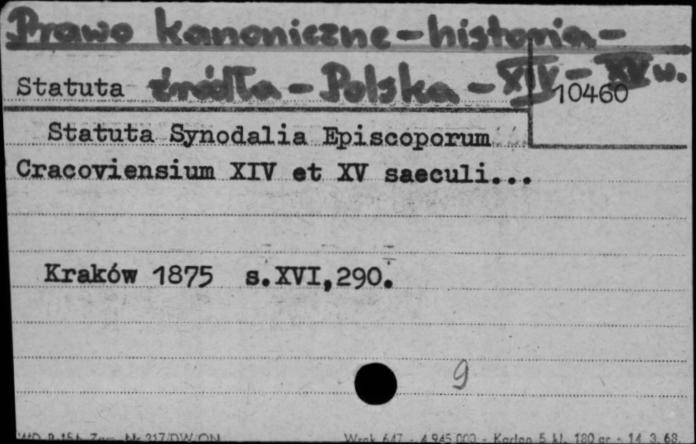 Prawo kanoniczne - historia -
Statuta źródła - Polska - XIV - XV w.
10460
Statuta Synodalia Episcoporum
Cracoviensium XIV et XV saeculi...
Kraków 1875 s.XVI,290.
9
217/DW/ON 4 945 000 - Karton 5 kl. 180 gr - 14.3.68